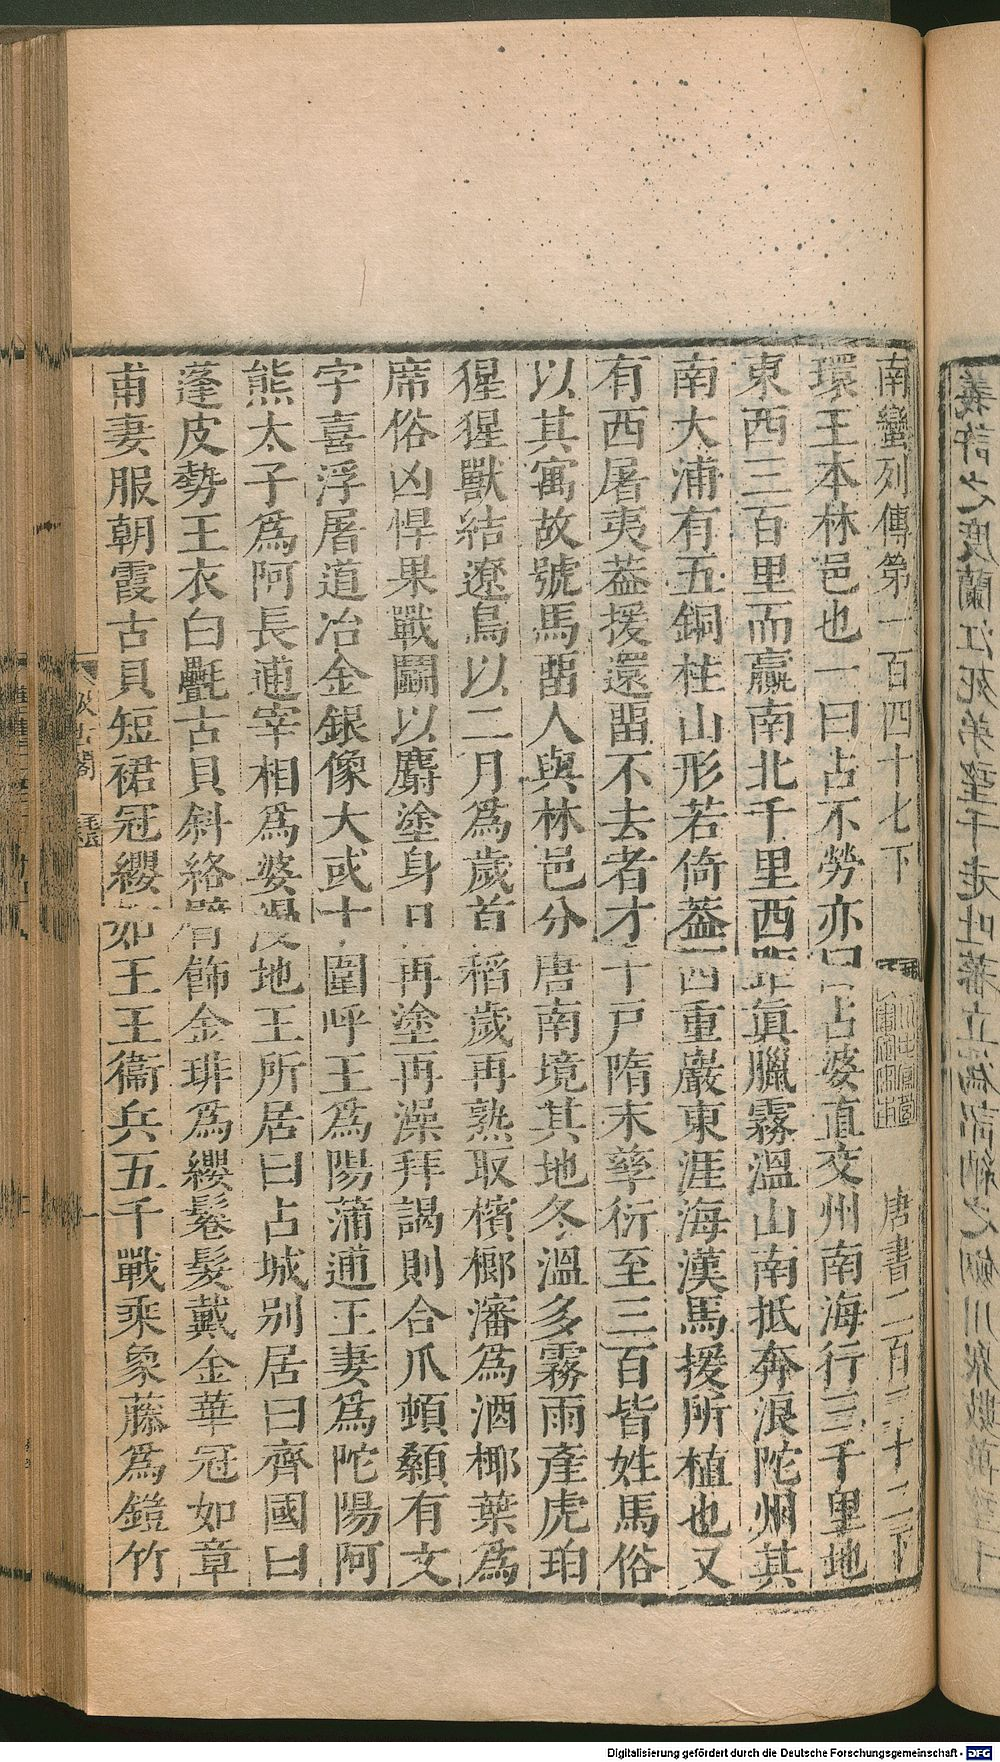 南蠻列傳第一百四十七下 唐書二百二十二下
環王本林邑也一曰占不勞亦曰占婆直交州南海行三千里地
東西三百里而贏南北千里西距眞臘霧溫山南抵奔浪陀州其
南大浦有五銅柱山形若倚蓋西重巖東涯海漢馬援所植也又
有西屠夷蓋援還畱不去者才十戸隋末孳衍至三百皆姓馬俗
以其寓故號馬畱人與林邑分唐南境其地冬溫多霧雨產虎珀
猩猩獸結遼鳥以二月爲歲首稻歲再熟取檳榔瀋爲酒椰葉爲
席俗凶悍果戰鬭以麝塗身日再塗再澡拜謁則合爪頓顙有文
字喜浮屠道冶金銀像大或十圍呼王爲陽蒲逋王妻爲陀陽阿
熊太子爲阿長逋宰相爲婆漫地王所居曰占城别居曰齊國曰
蓬皮勢王衣白氎古貝斜絡臂飾金琲爲纓鬈髮戴金華冠如章
甫妻服朝霞古貝短裙冠纓如王王衞兵五千戰乘象藤爲鎧竹
汲古閣
Digitalisierung gefördert durch die Deutsche Forschungsgemeinschaft - DFG